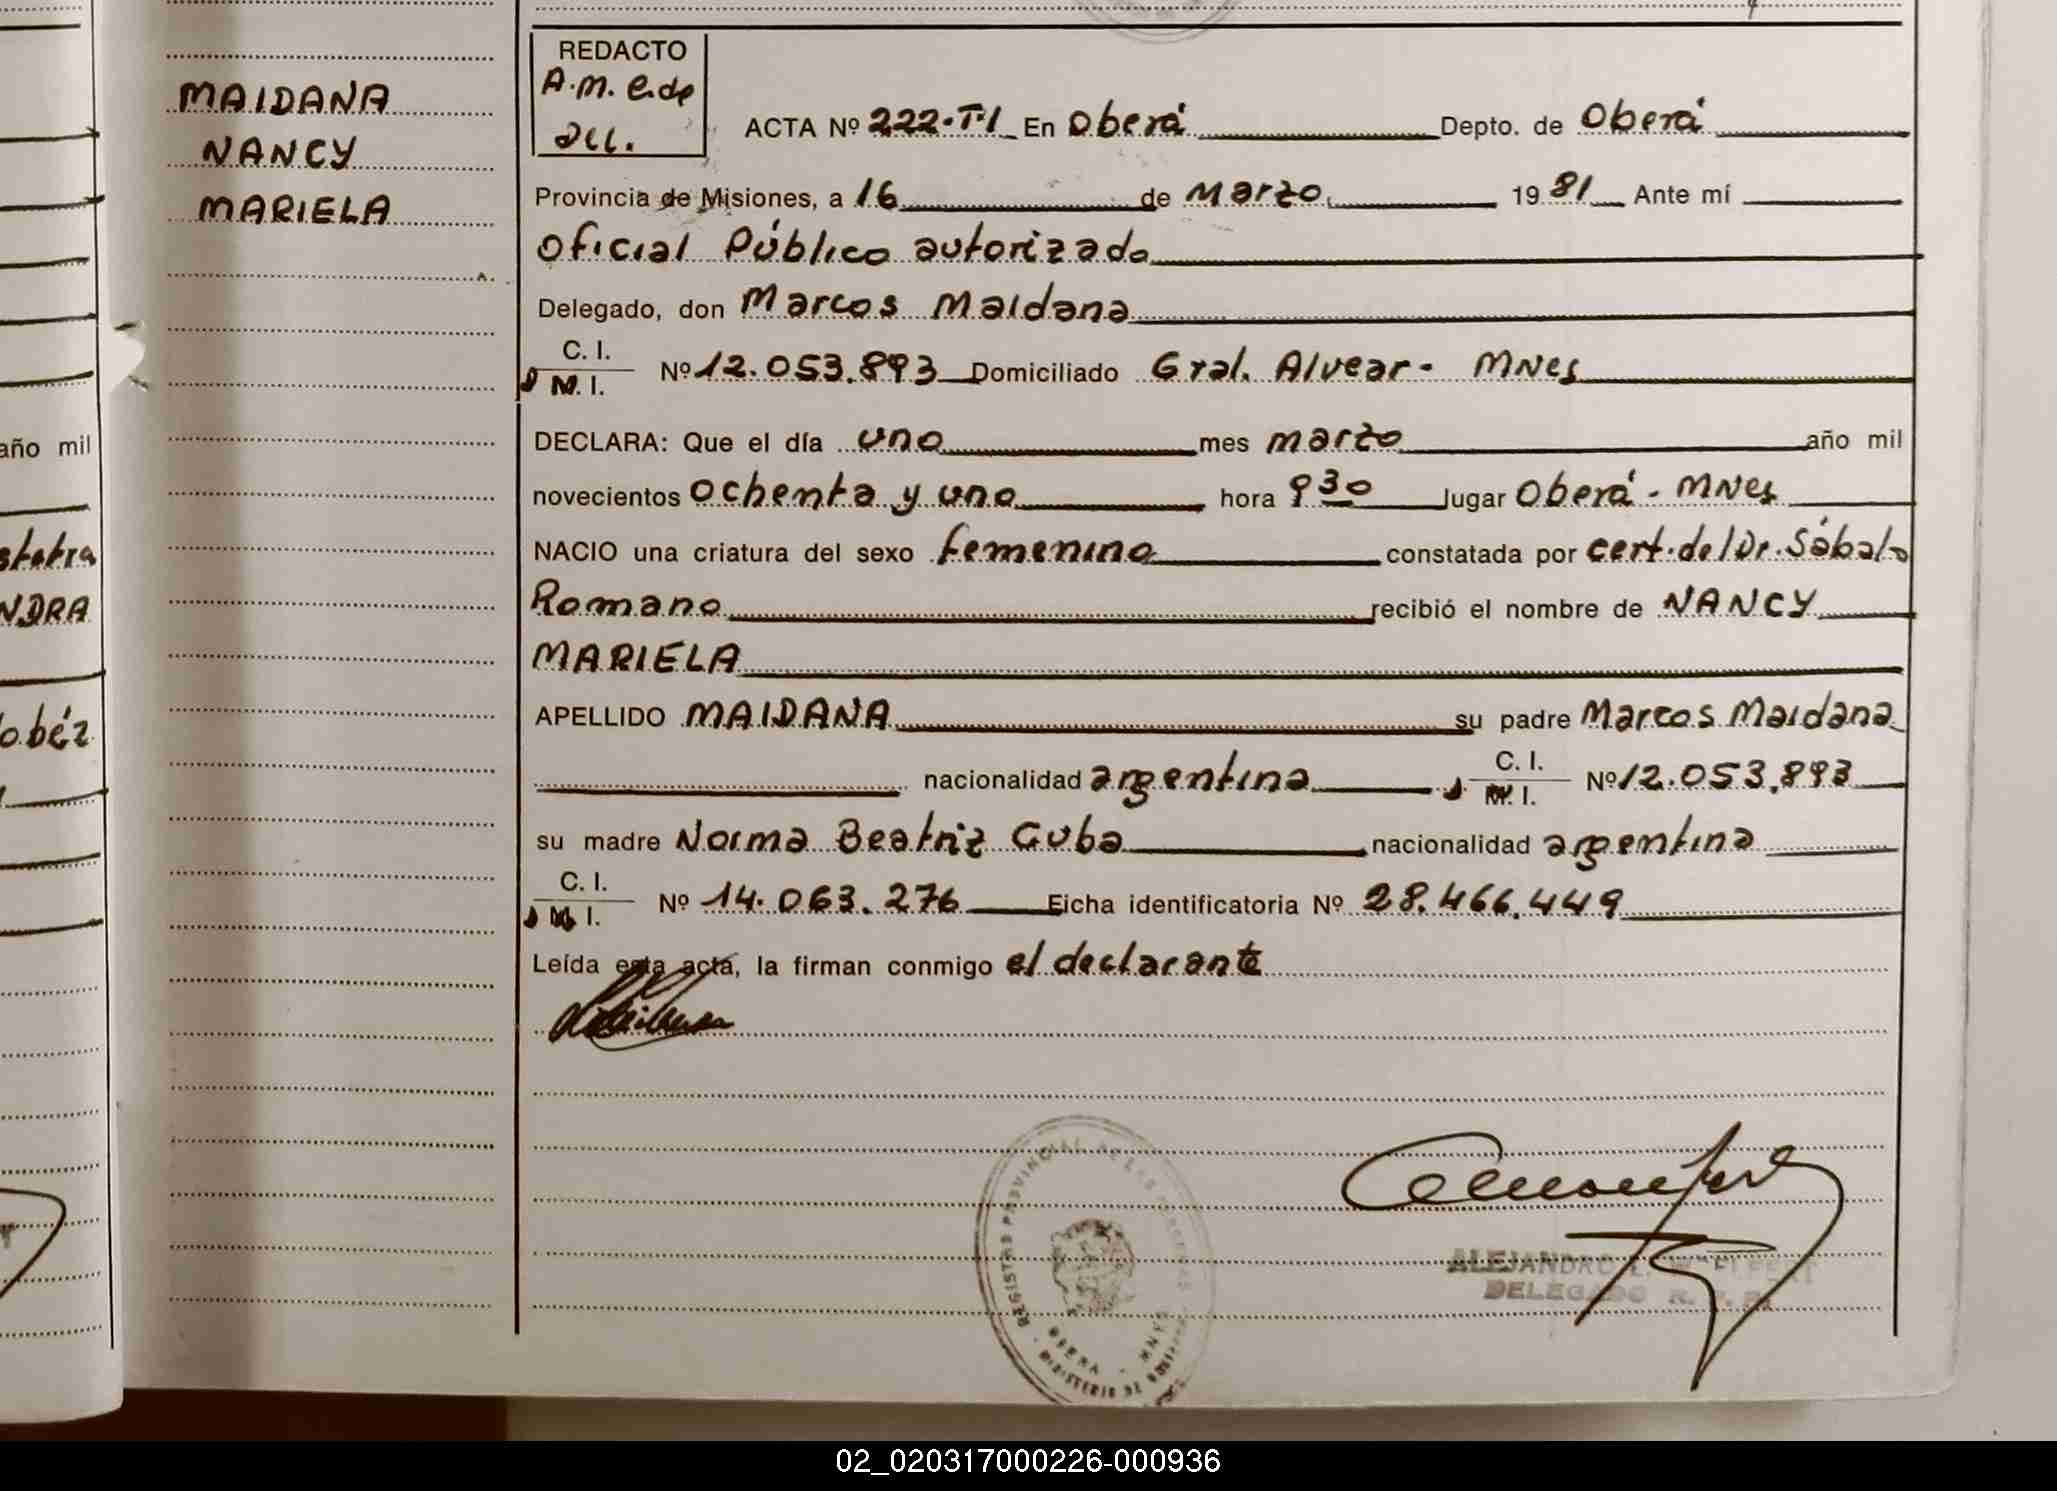 MAIDANA
NANCY
MARIELA
REDACTO
A.M.C.de
ACTA Nº 222-TI En Oberá Depto. de Oberá
Provincia de Misiones, a 16 de Marzo 1981 Ante mí
Oficial Público autorizado
Delegado, don Marcos Maidana
C. I.
M. I. Nº 12.053.893 Domiciliado Gral. Alvear - MNes
DECLARA: Que el día uno mes marzo año mil
novecientos ochenta y uno hora 9 30 lugar Oberá - MNes
NACIO una criatura del sexo femenino constatada por cert. del Dr. Sábalo
Romano recibió el nombre de NANCY
MARIELA
APELLIDO MAIDANA su padre Marcos Maidana
nacionalidad argentina C. I. M. I. Nº 12.053.893
su madre Norma Beatriz Cuba nacionalidad argentina
C. I.
M. I. Nº 14.063.276 Ficha identificatoria Nº 28.466.449
Leída esta acta, la firman conmigo el declarante
ALEJANDRO
DELEGADO R. P. P.
año mil
NDRA
02_020317000226-000936